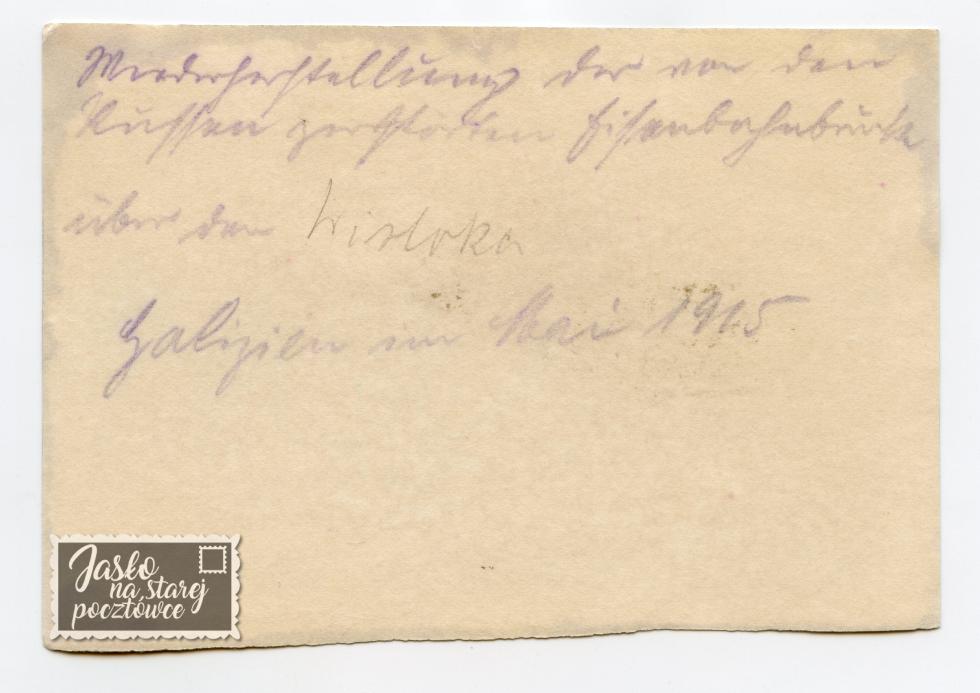 Wiederherstellung der von den
Russen zerstörten Eisenbahnbrücke
über den Wisloka
Galizien im Mai 1915
Jasło
na starej
pocztówce